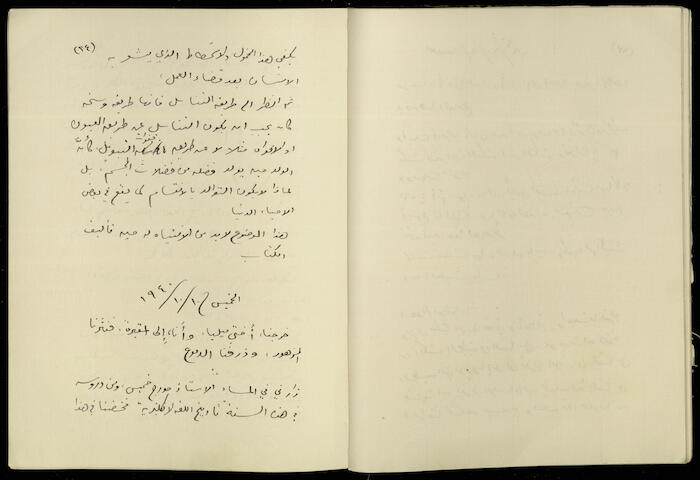 (٣٤)
يكفي هذا الخمول والانحطاط الذي يشعر به
الانسان بعد قضاء العمل.
ثم انظر الى طريقة التناسل فانها طريقة وسخة
كان يجب ان يكون التناسل عن طريق العيون
او الافواه مثلا لا عن طريقة التبويل. كأنّ
الولد حين يولد فضلة من فضلات الجسم. بل
لماذا لا يكون التوالد بالانقسام كما يقع في بعض
الاحياء الدنيا
هذا الموضوع لا بد من الانتباه له حين تأليف
الكتاب
الخميس ١٠/١٠/١٩٤٠
خرجنا، أختي ميليا، وأنا، إلى المقبرة. فنثرنا
الزهور، وذرفنا الدموع
زارني في المساء الاستاذ جورج خميس ومن دروسه
في هذه السنة تاريخ اللغة الانكليزية فخضنا في هذا